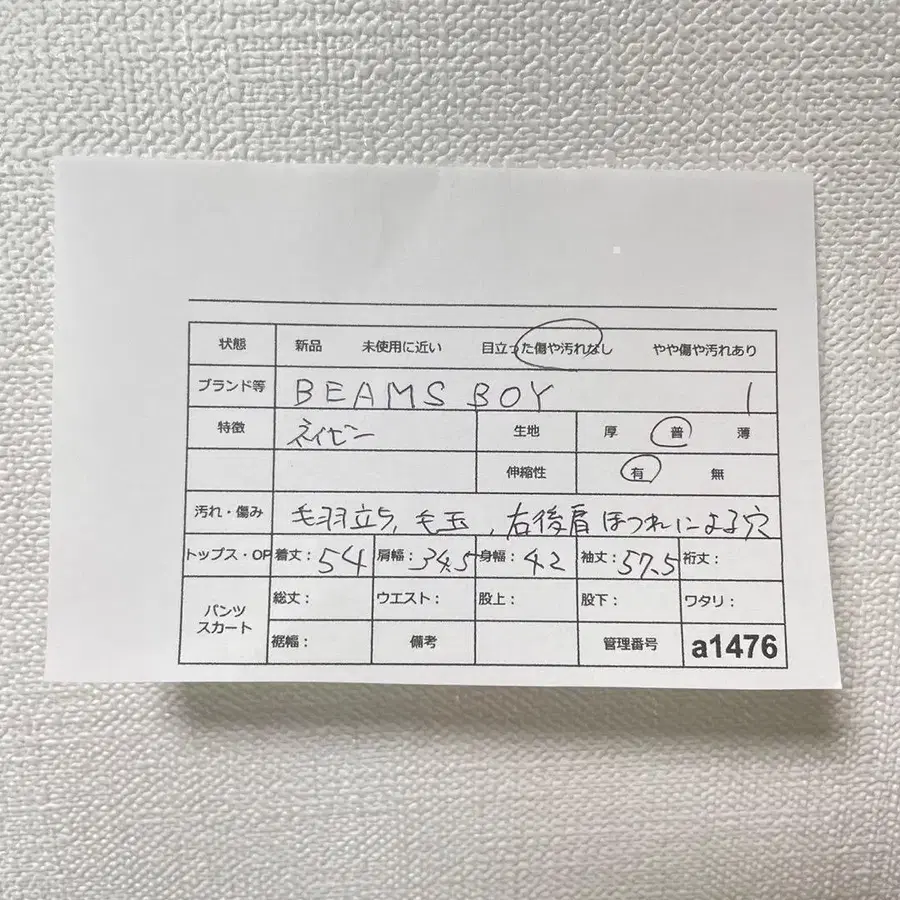 状態 新品 未使用に近い 目立った傷や汚れなし やや傷や汚れあり
ブランド等 BEAMS BOY 1
特徴 ネイビー 生地 厚 普 薄
伸縮性 有 無
汚れ・傷み 毛羽立ち, 毛玉, 右後肩ほつれによる穴
トップス・OP 着丈: 54 肩幅: 34.5 身幅: 42 袖丈: 57.5 裄丈:
パンツ スカート 総丈: ウエスト: 股上: 股下: ワタリ:
裾幅: 備考 管理番号 a1476